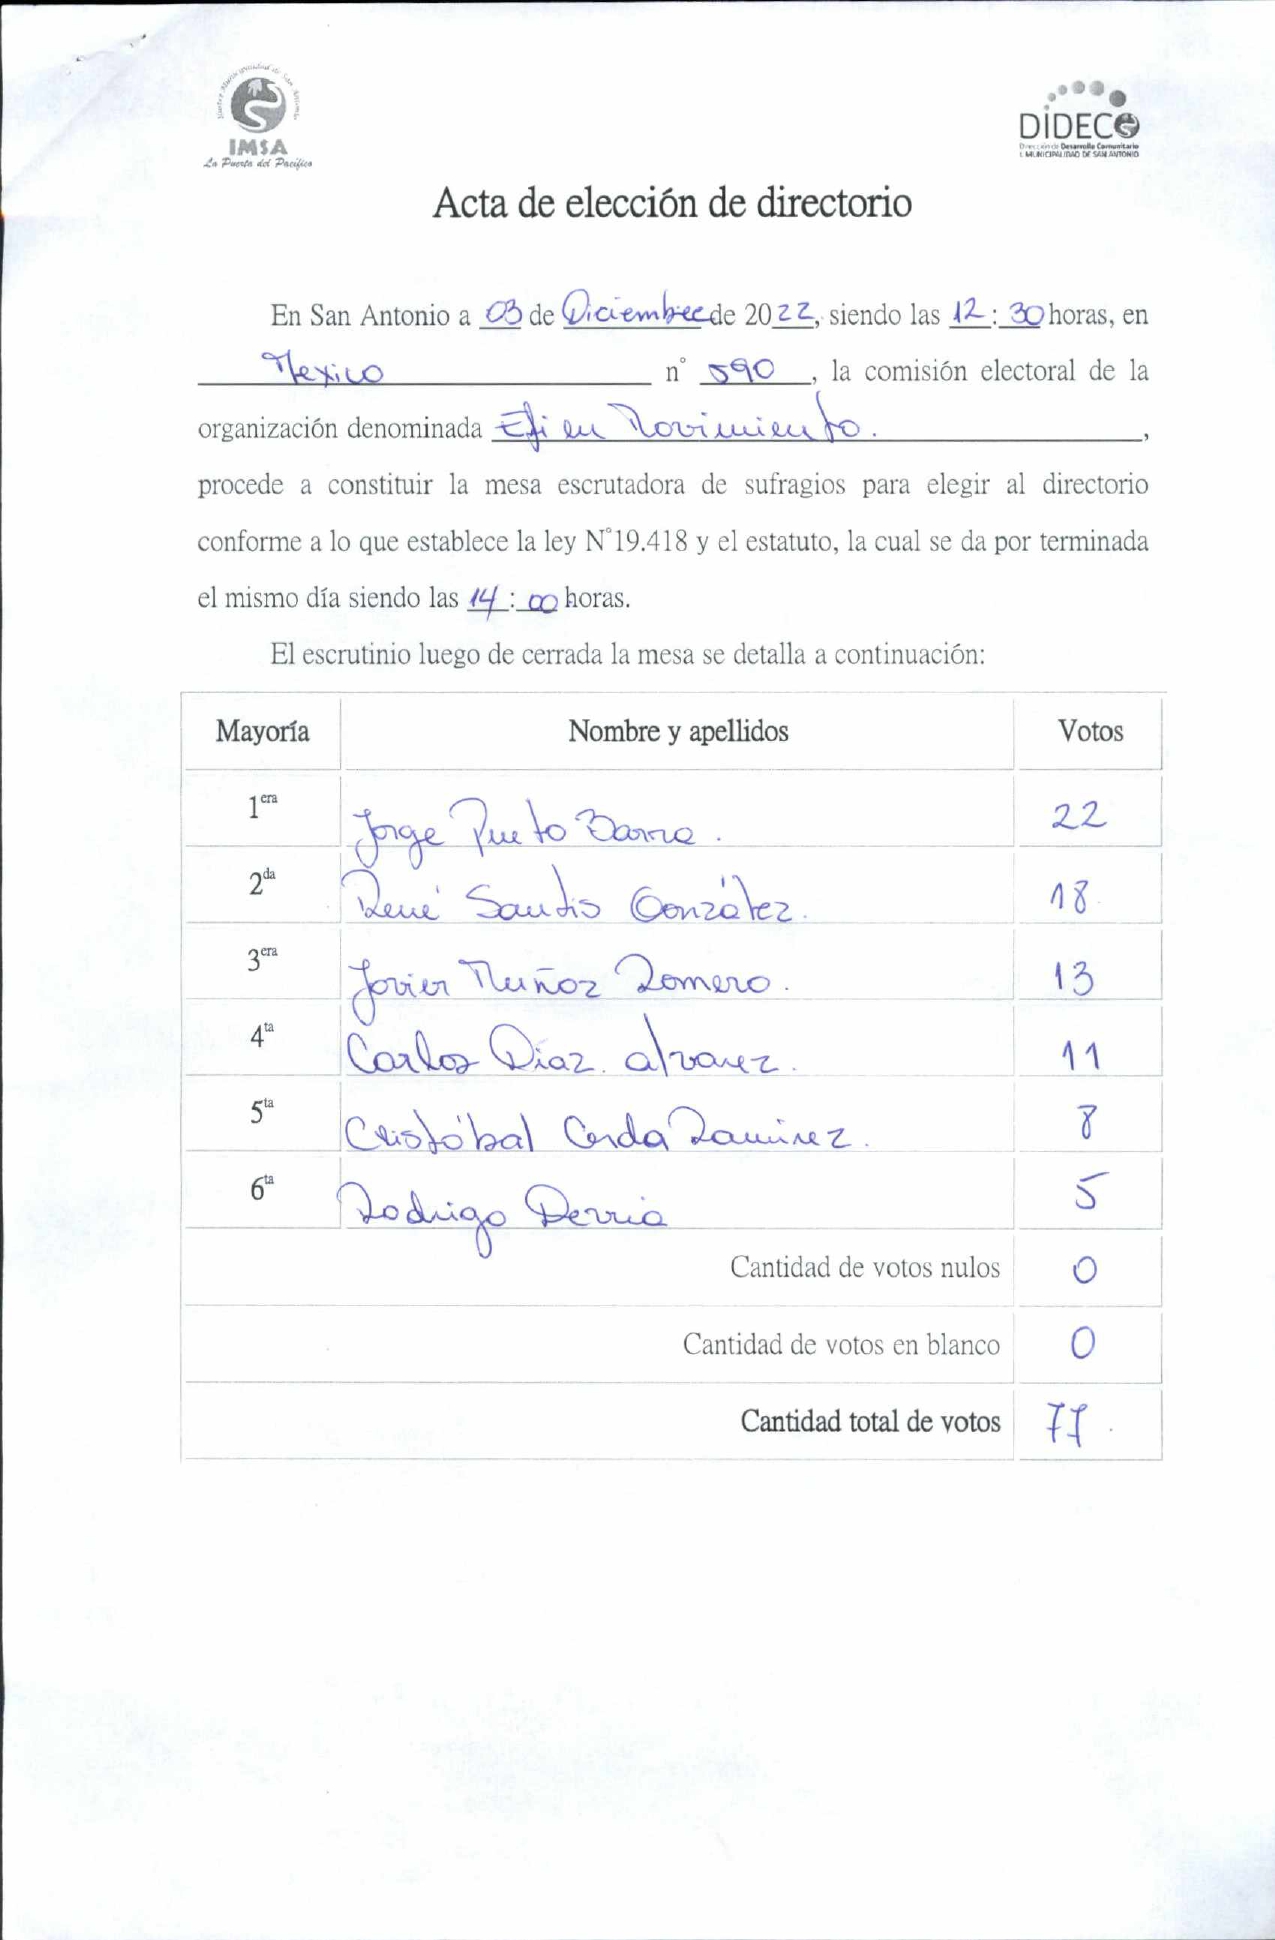 Ilustre Municipalidad de San Antonio
IMSA
La Puerta del Pacífico
DIDECO
Dirección de Desarrollo Comunitario
I. MUNICIPALIDAD DE SAN ANTONIO
Acta de elección de directorio
En San Antonio a 03 de Diciembre de 2022, siendo las 12:30 horas, en
Mexico n° 590, la comisión electoral de la
organización denominada Efi en Movimiento.,
procede a constituir la mesa escrutadora de sufragios para elegir al directorio
conforme a lo que establece la ley N°19.418 y el estatuto, la cual se da por terminada
el mismo día siendo las 14:00 horas.
El escrutinio luego de cerrada la mesa se detalla a continuación:
Mayoría Nombre y apellidos Votos
1era Jorge Barra. 22
2da René González. 18
3era Javier Muñoz Romero. 13
4ta Carlos Díaz. alvarez. 11
5ta Cristóbal Cerda Ramírez. 8
6ta Rodrigo 5
Cantidad de votos nulos 0
Cantidad de votos en blanco 0
Cantidad total de votos 77.